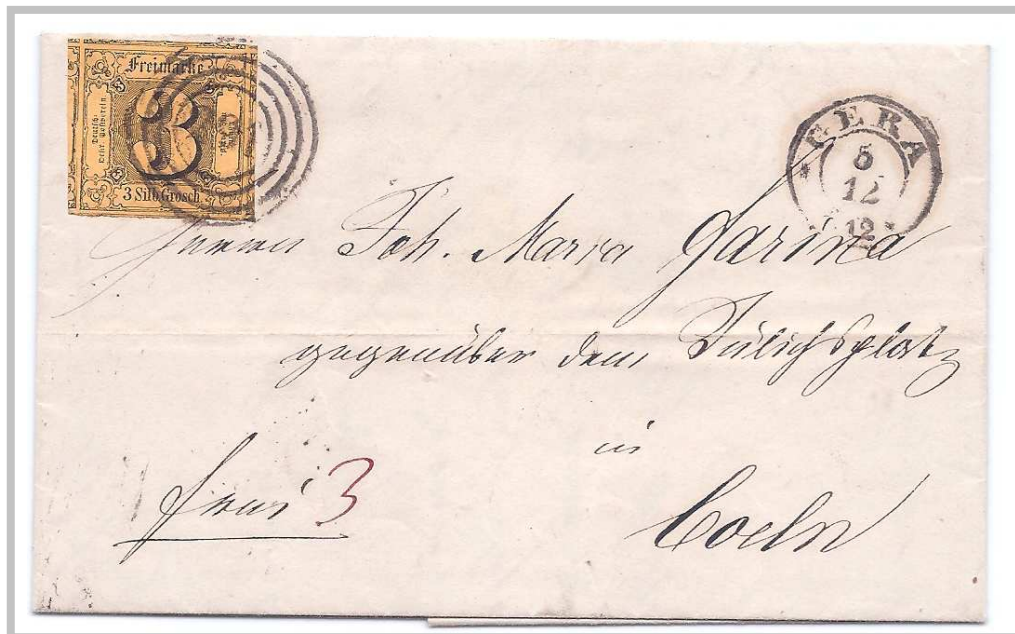 Freimarke
Deutsch-
Oestr. Postverein
3
3 Silb. Grosch
GERA
5
12
12
Herrn Joh. Maria Farina
gegenüber dem Jülichsplatz
in
Coeln
frei 3